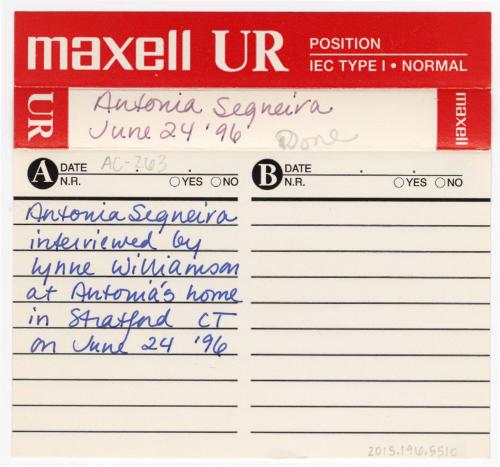 maxell UR POSITION
IEC TYPE I • NORMAL
UR
Antonia Seqneira
June 24 '96 Done
maxell
A DATE AC-263
N.R. YES NO
Antonia Seqneira
interviewed by
Lynne Williamson
at Antonia's home
in Stratford CT
on June 24 '96
B DATE
N.R. YES NO
2015.196.551c